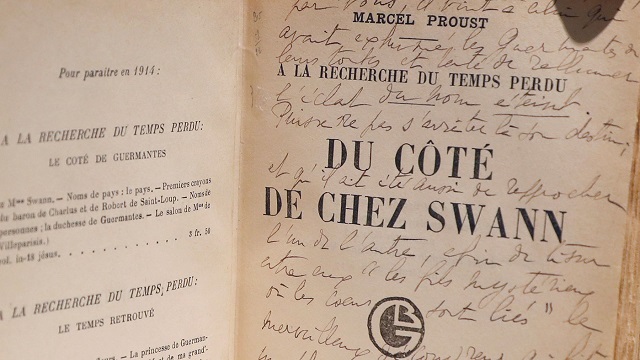 Pour paraître en 1914 :
A LA RECHERCHE DU TEMPS PERDU:
LE COTÉ DE GUERMANTES
Mme Swann. — Noms de pays : le pays. — Premiers crayons
du baron de Charlus et de Robert de Saint-Loup. — Noms de
personnes ; la duchesse de Guermantes. — Le salon de Mme de
Villeparisis.)
vol. in-18 jésus. . . . . . . . . . 3 fr. 50
A LA RECHERCHE DU TEMPS PERDU:
LE TEMPS RETROUVÉ
— La princesse de Guer-
par vous, il
MARCEL PROUST
avait exhumé les Guermantes de
leurs et tenté de rallumer
A LA RECHERCHE DU TEMPS PERDU
l'éclat du nom éteint.
Puisse ne pas s'arrêter là son destin,
DU CÔTÉ
et qu'il ait été aussi de rapprocher
DE CHEZ SWANN
l'un de l'autre, afin de tisser
entre eux "les fils mystérieux
où les cœurs sont liés" le
BG
merveilleux